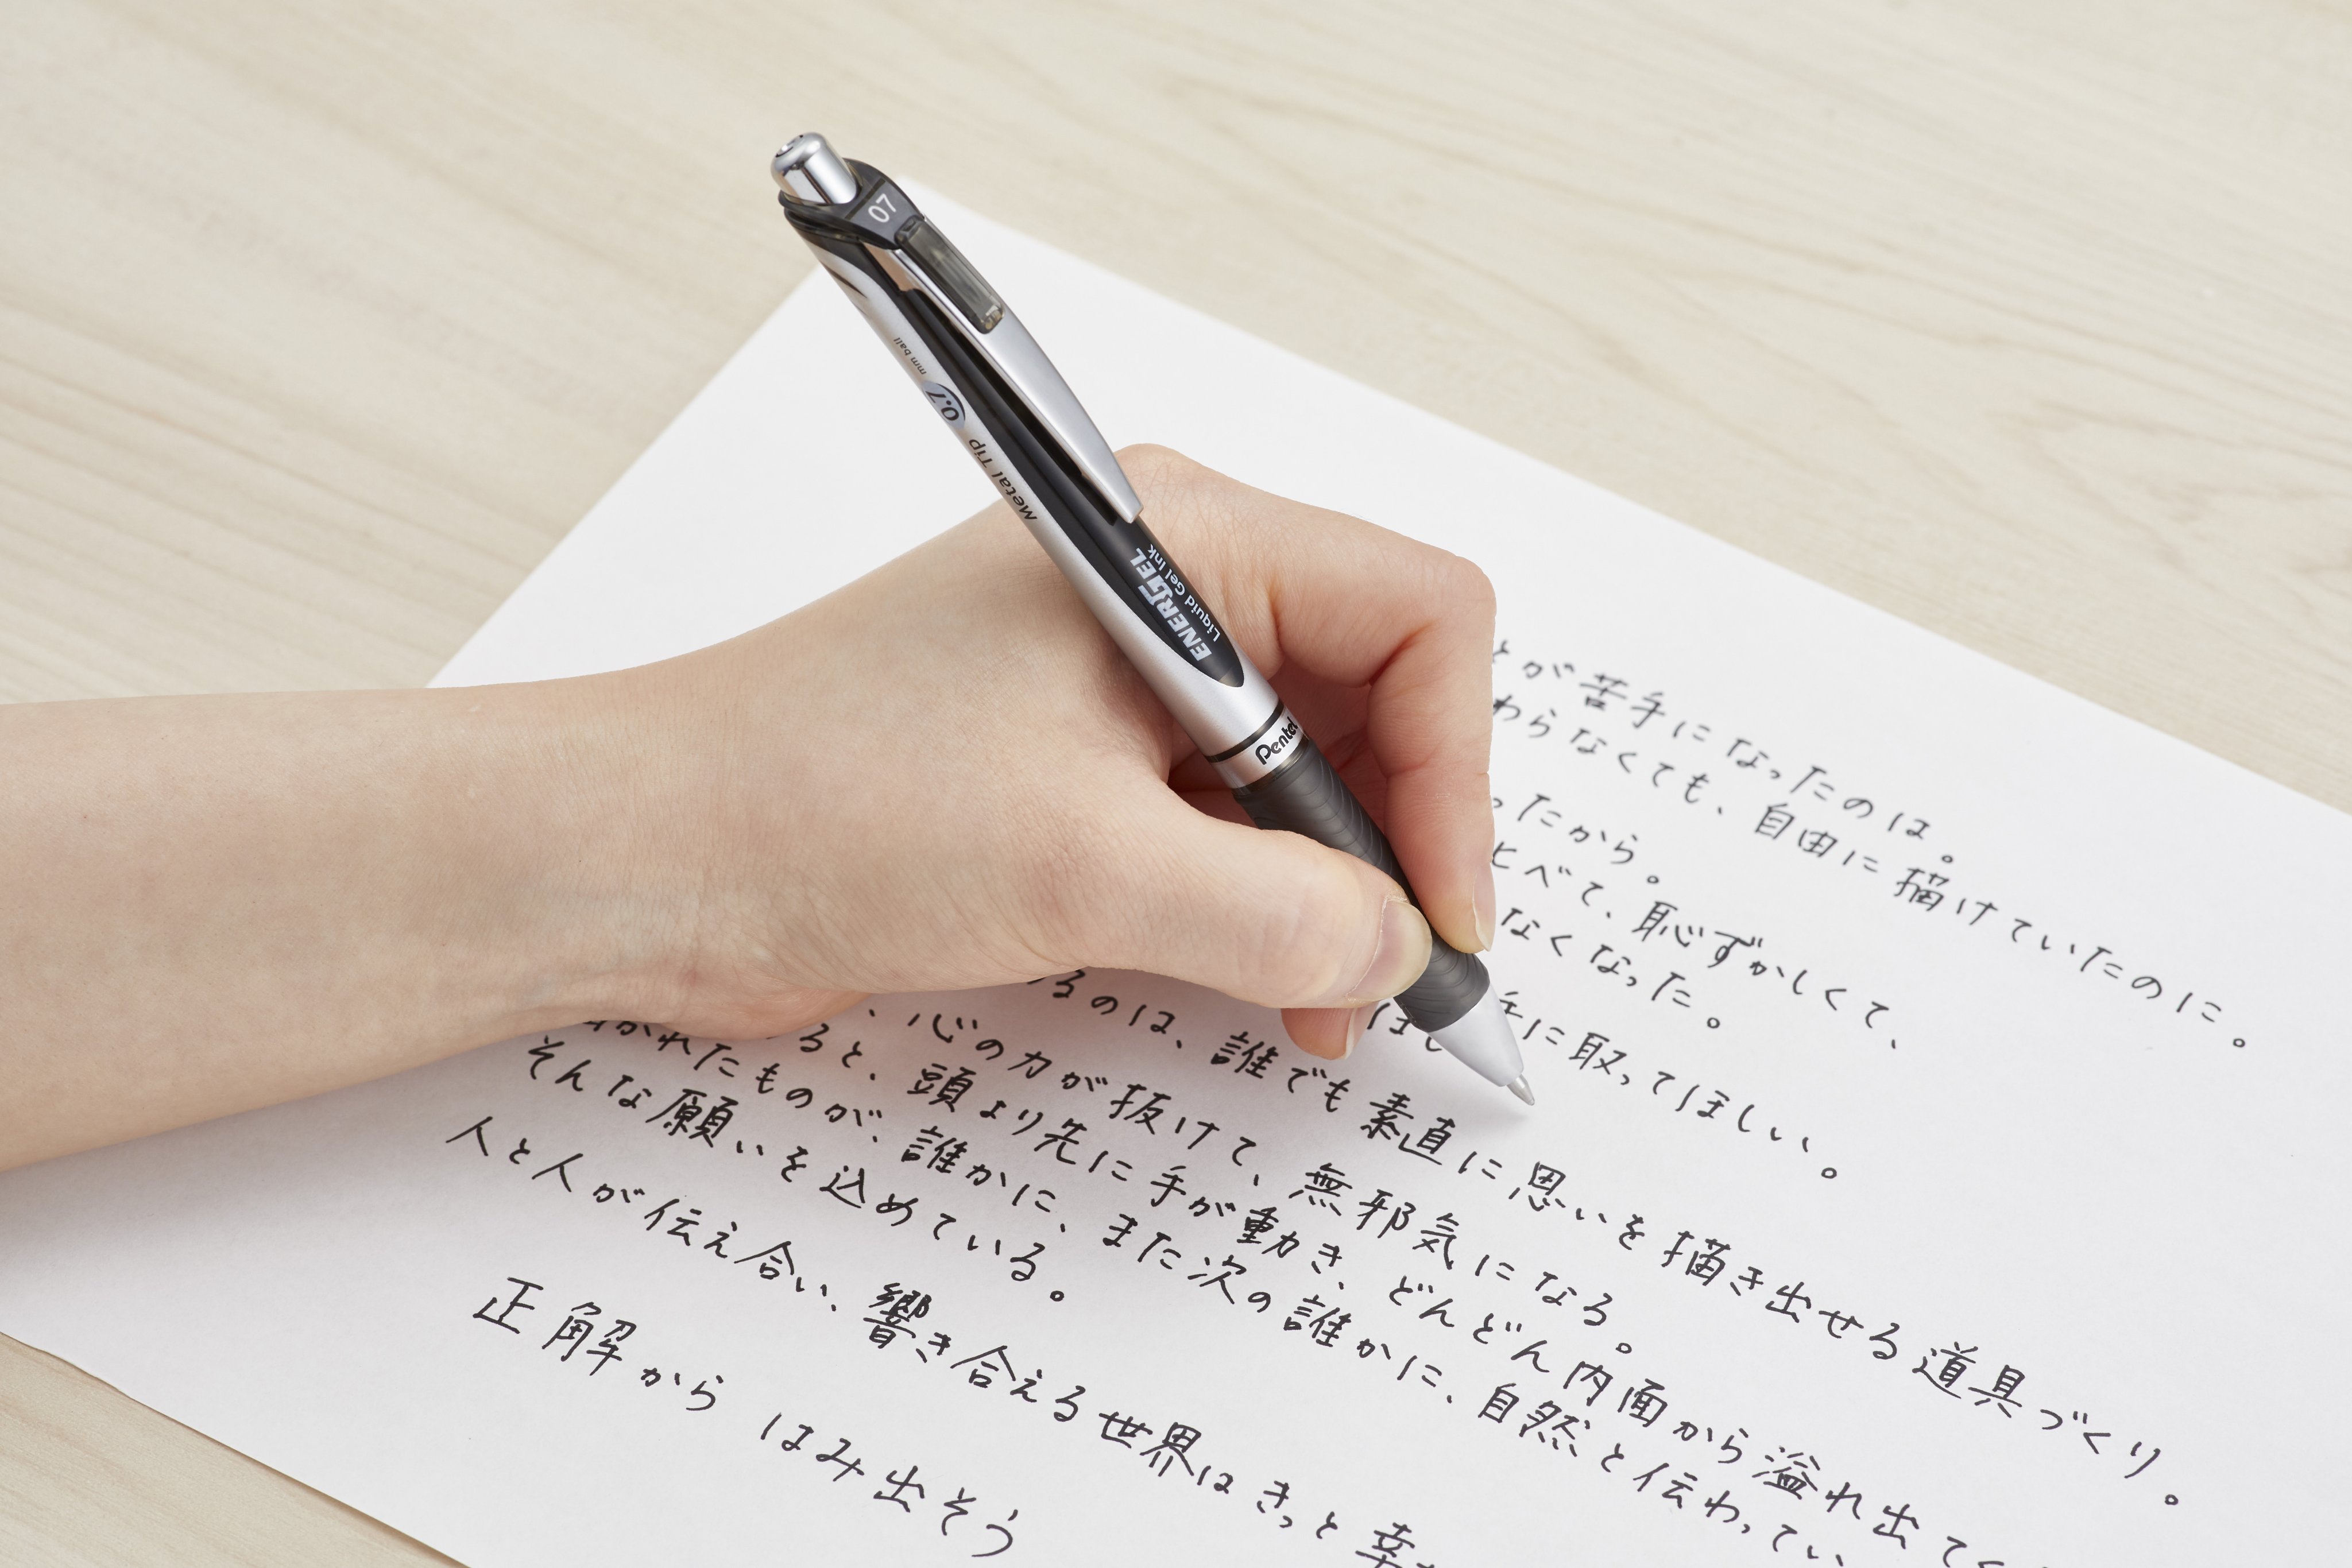 07
mm ball
0.7
Metal Tip
ENERGEL
Liquid Gel Ink
Pentel
が苦手になったのは。
わらなくても、自由に描けていたのに。
ったから。
とべて、恥ずかしくて、
なくなった。
手に取ってほしい。
るのは、誰でも素直に思いを描き出せる道具づくり。
、心の力が抜けて、無邪気になる。
ると、頭より先に手が動き、どんどん内面から溢れ出て
かれたものが、誰かに、また次の誰かに、自然と伝わってい
そんな願いを込めている。
人と人が伝え合い、響き合える世界はきっと幸
正解から はみ出そう